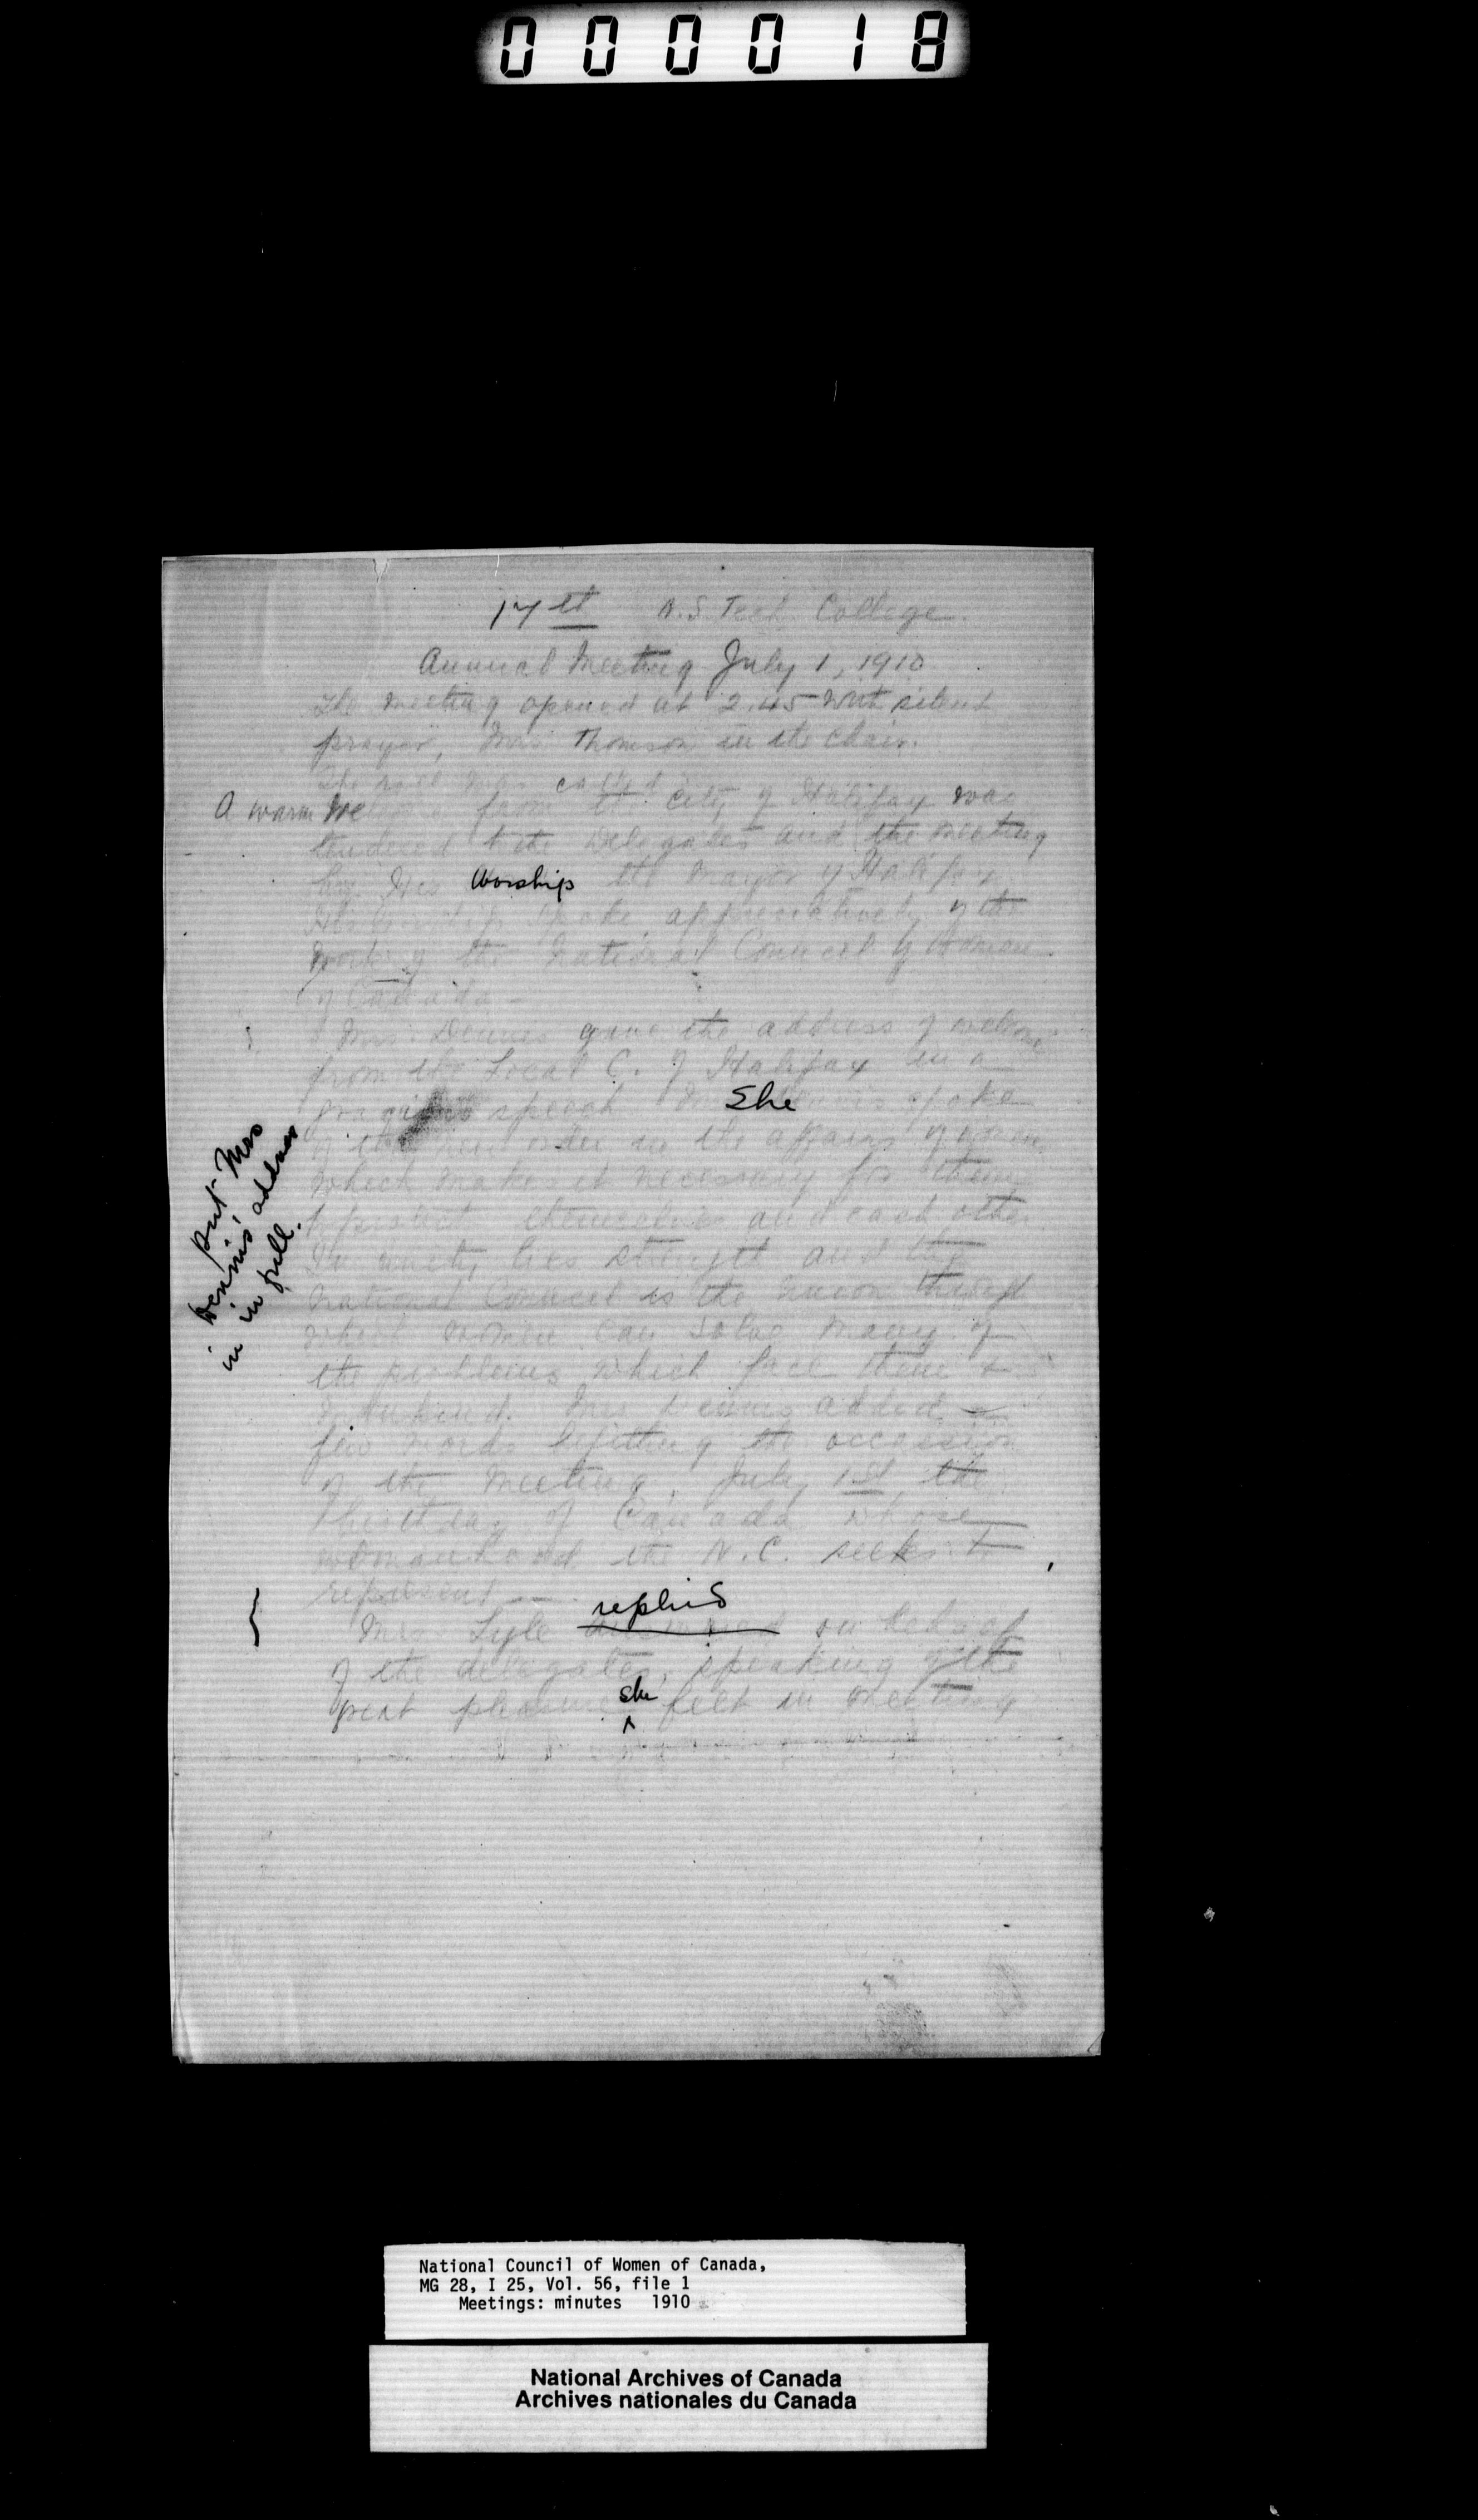 000018
17th N.S. Tech College.
Annual Meeting July 1, 1910
The meeting opened at 2.45 with silent
prayer, Mrs. Thomson in the chair.
The roll was called
A warm welcome from the city of Halifax was
tendered to the Delegates and the meeting
by His Worship the Mayor of Halifax.
His Worship spoke appreciatively of the
work of the National Council of Women
of Canada -
Mrs. Dennis gave the address of welcome
from the Local C. of Halifax in a
gracious speech. Mrs Dennis She spoke
of the new order in the affairs of women
which makes it necessary for them
to protect themselves and each other
In unity lies strength and the
National Council is the union through
which women can solve many of
the problems which face them &
mankind. Mrs Dennis added a
few words befitting the occasion
of the meeting, July 1st the
birthday of Canada whose
womanhood the N.C. seeks to
represent —
replied
Mrs. Lyle answered on behalf
of the delegates, speaking of the
great pleasure she felt in meeting
put Mrs
Dennis' address
in in full.
National Council of Women of Canada,
MG 28, I 25, Vol. 56, file 1
Meetings: minutes 1910
National Archives of Canada
Archives nationales du Canada